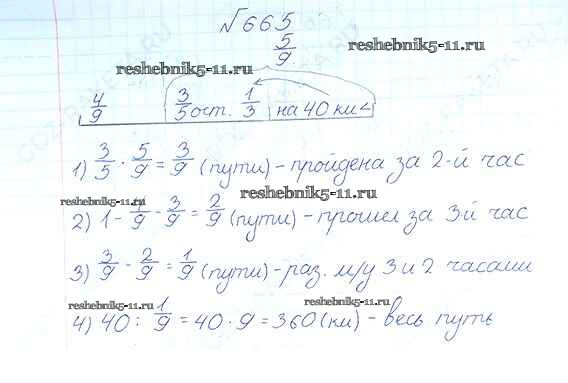 №665
5/9
reshebnik5-11.ru
reshebnik5-11.ru
4/9 3/5 ост. 1/3 на 40 км <
1) 3/5 · 5/9 = 3/9 (пути) - пройдена за 2-й час
reshebnik5-11.ru
reshebnik5-11.ru
2) 1 - 4/9 - 3/9 = 2/9 (пути) - прошел за 3й час
3) 3/9 - 2/9 = 1/9 (пути) - раз. м/у 3 и 2 часами
reshebnik5-11.ru
reshebnik5-11.ru
4) 40 : 1/9 = 40 · 9 = 360 (км) - весь путь